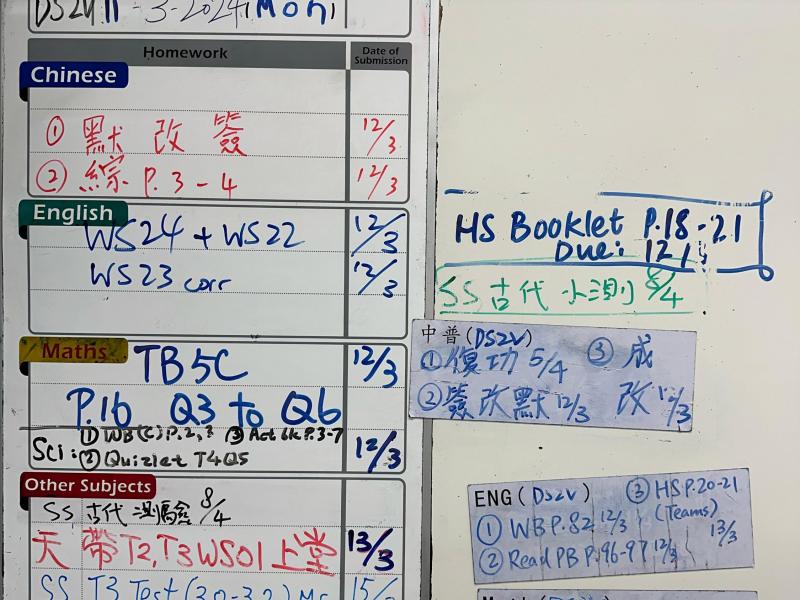 11-3-2024 (Mon)
Homework
Date of Submission
Chinese
① 默 改 簽 12/3
② 綜 P.3-4 12/3
English
WS24 + WS22 12/3
WS23 corr 12/3
Maths
TB5C 12/3
P.16 Q3 to Q6
Sci: ① WB(C) P.2,3 ③ Act bk P.3-7 12/3
② Quizlet T4Q5
Other Subjects
SS 古代 測驗 8/4
天 帶T2,T3 WS01 上堂 13/3
SS T3 Test
HS Booklet P.18-21
Due: 12/
SS 古代 小測 8/4
中普(DS2V)
① 復功 5/4 ③ 成
② 簽改默 12/3 改 12/3
ENG (DS2V) ③ HS P.20-21
① WB P.82 12/3 (Teams)
② Read PB P.96-97 12/3 13/3